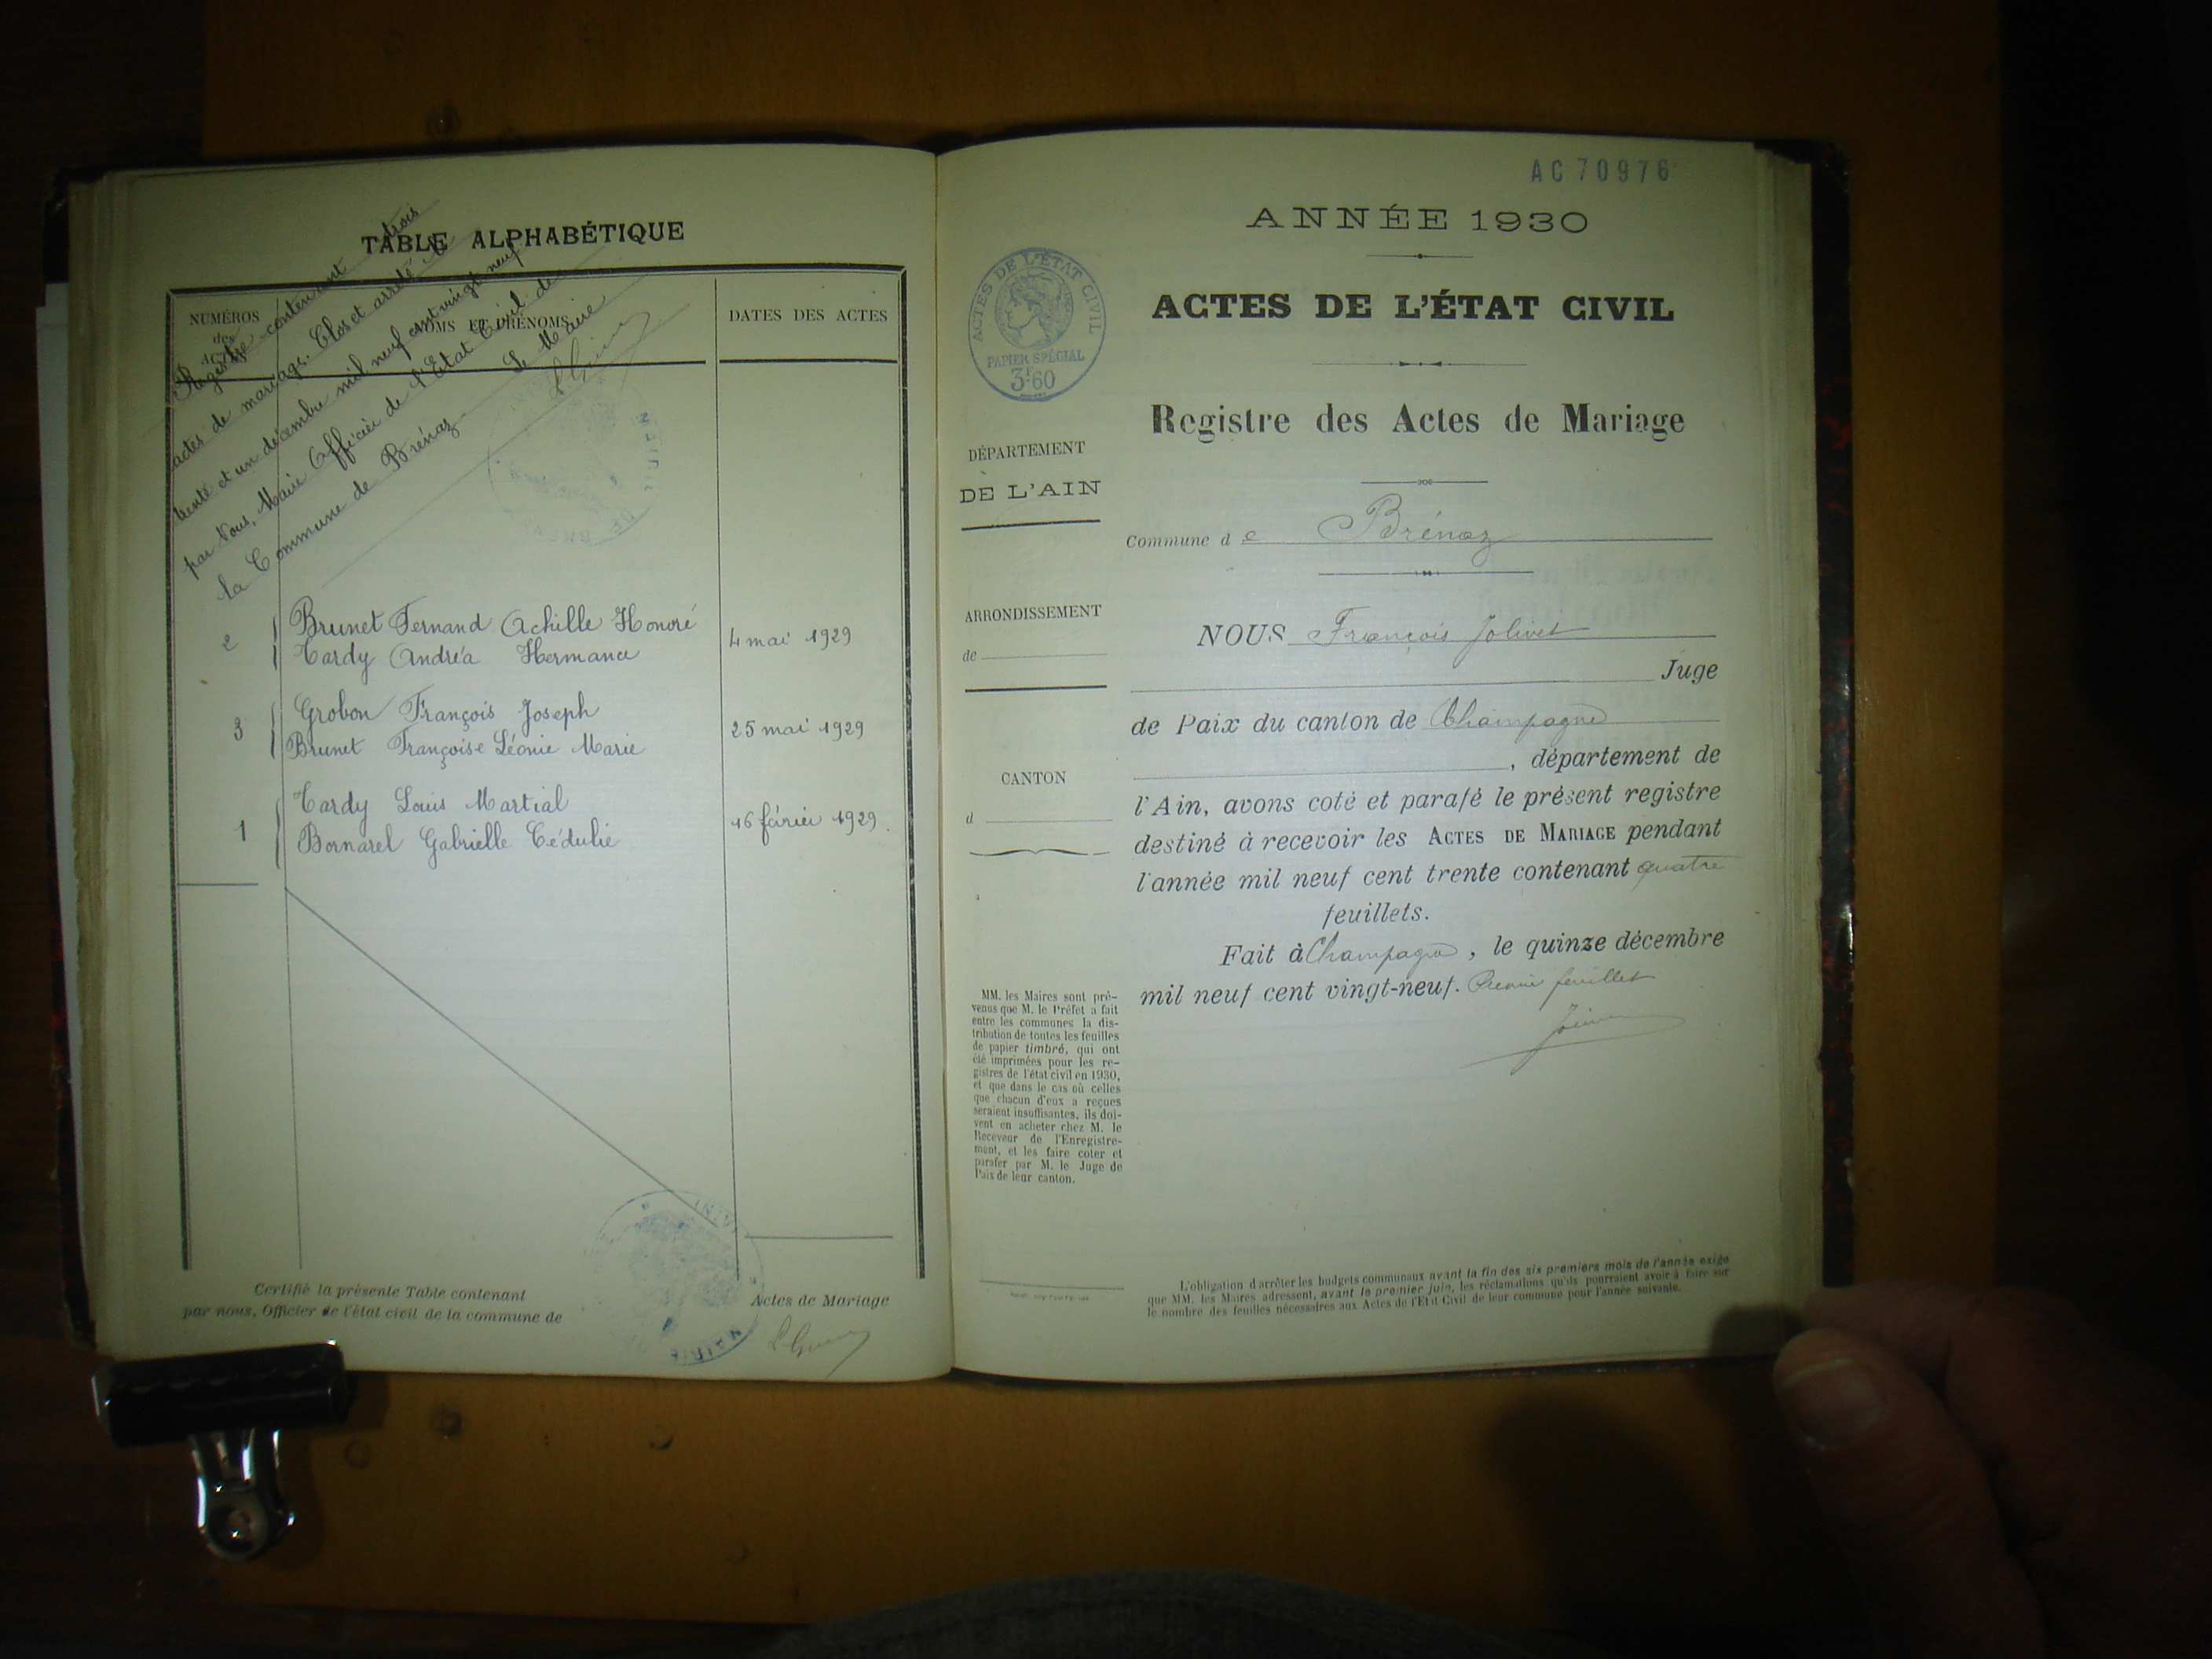 TABLE ALPHABÉTIQUE
Registre contenant trois
actes de mariage. Clos et arrêté le
trente et un décembre mil neuf cent vingt neuf
par Nous, Maire Officier de l'Etat Civil de
la Commune de Brénaz. Le Maire
NUMÉROS
des
ACTES
NOMS ET PRÉNOMS
DATES DES ACTES
2
Brunet Fernand Achille Honoré
Tardy Andréa Hermance
4 mai 1929
3
Grobon François Joseph
Brunet Françoise Léonie Marie
25 mai 1929
1
Tardy Louis Martial
Bornarel Gabrielle Cédulie
16 février 1929.
Certifié la présente Table contenant
Actes de Mariage
par nous, Officier de l'état civil de la commune de
AC 70976
ANNÉE 1930
ACTES DE L'ÉTAT CIVIL
ACTES DE L'ETAT CIVIL
PAPIER SPÉCIAL
3F60
Registre des Actes de Mariage
DÉPARTEMENT
DE L'AIN
Commune de Brénaz
ARRONDISSEMENT
de
CANTON
d
NOUS François Jolivet
Juge
de Paix du canton de Champagne
, département de
l'Ain, avons coté et parafé le présent registre
destiné à recevoir les ACTES DE MARIAGE pendant
l'année mil neuf cent trente contenant quatre
feuillets.
Fait à Champagne, le quinze décembre
mil neuf cent vingt-neuf. Premier feuillet
MM. les Maires sont pré-
venus que M. le Préfet a fait
entre les communes la dis-
tribution de toutes les feuilles
de papier timbré, qui ont
été imprimées pour les re-
gistres de l'état civil en 1930,
et que dans le cas où celles
que chacun d'eux a reçues
seraient insuffisantes, ils doi-
vent en acheter chez M. le
Receveur de l'Enregistre-
ment, et les faire coter et
parafer par M. le Juge de
Paix de leur canton.
L'obligation d'arrêter les budgets communaux avant la fin des six premiers mois de l'année exige
que MM. les Maires adressent, avant le premier juin, les réclamations qu'ils pourraient avoir à faire sur
le nombre des feuilles nécessaires aux Actes de l'État Civil de leur commune pour l'année suivante.